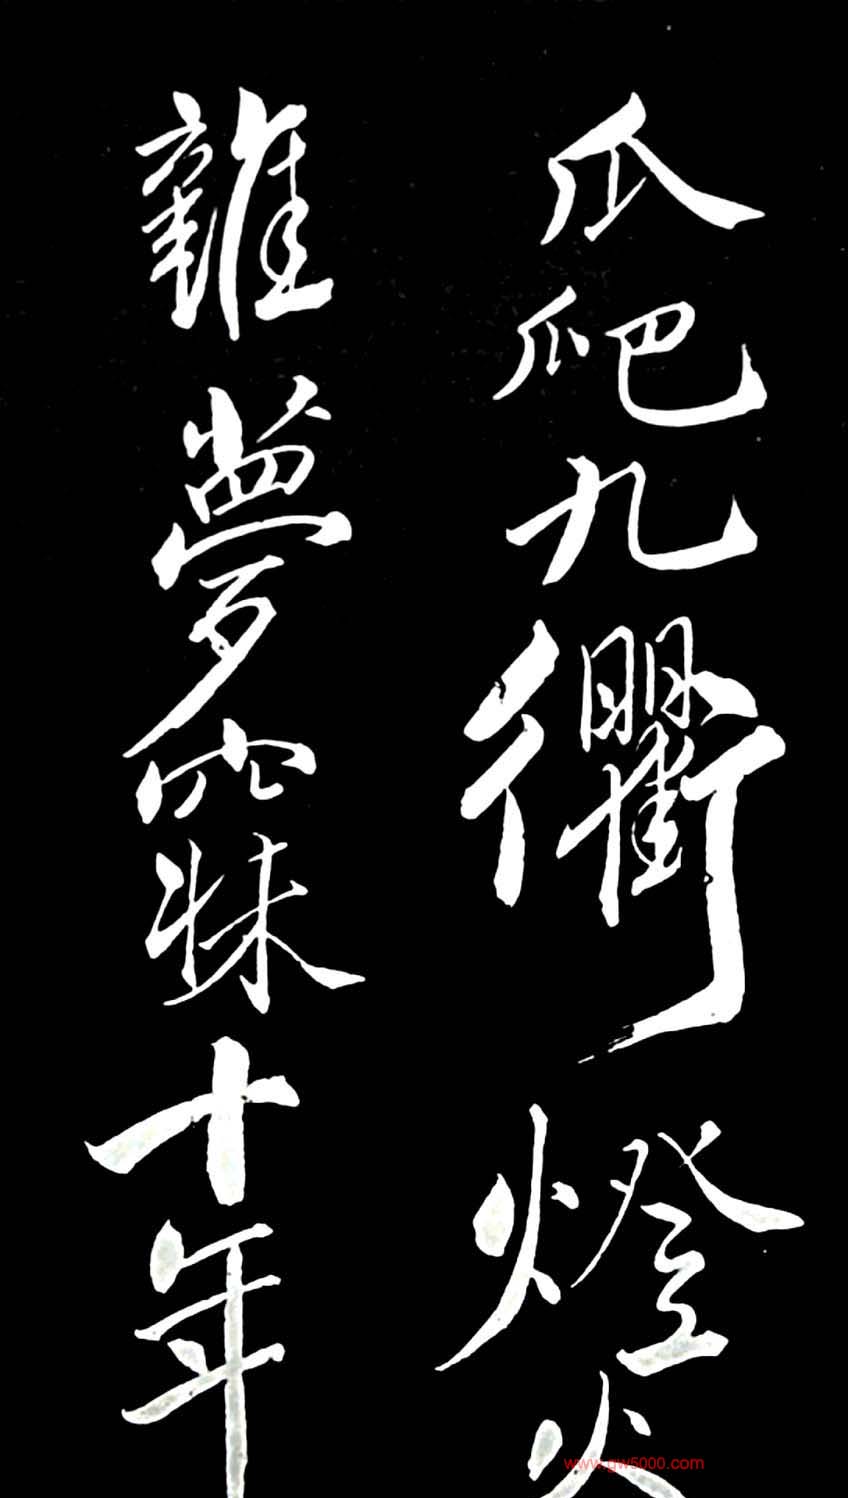 爪爬九衢燈火
雜夢寐十年
www.gw5000.com